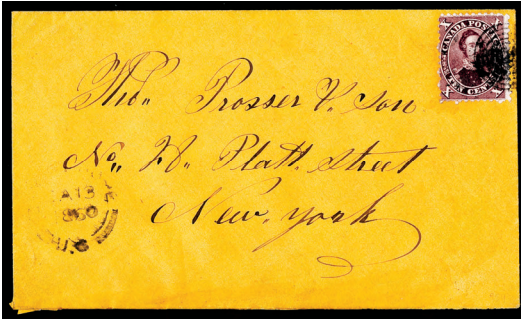 CANADA POSTAGE
TEN CENTS
Tho,, Prosser & Son
No,, 28,, Platt. Street
New,, york
A 13
860